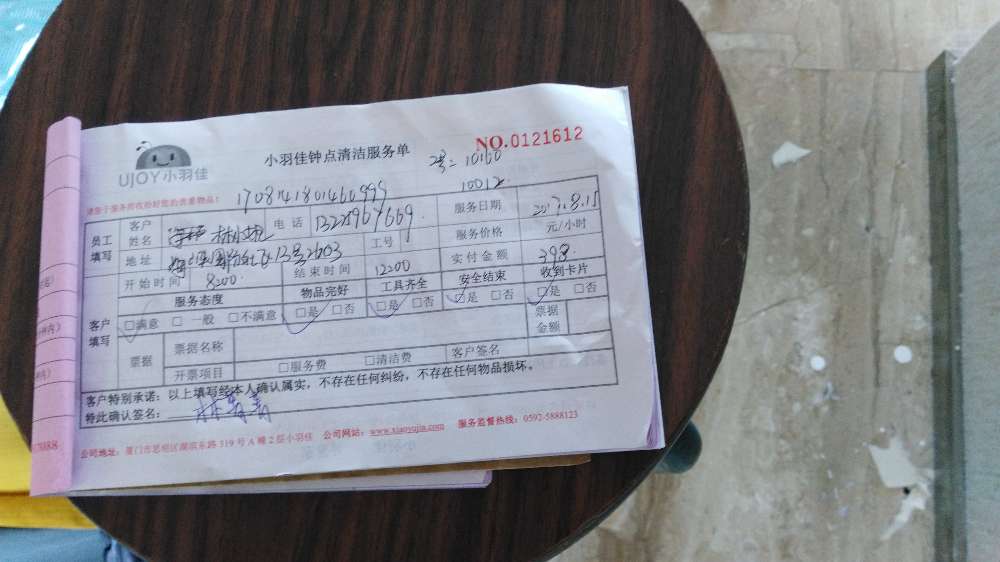 UJOY小羽佳
小羽佳钟点清洁服务单
NO.0121612
10160
请您于服务前收拾好您的贵重物品!
170814180146099
10012
员工填写
客户姓名
电话
服务日期
2017.8.15
地址
13号2603
工号
服务价格
元/小时
开始时间
8:00
结束时间
12:00
实付金额
398
服务态度
物品完好
工具齐全
安全结束
收到卡片
客户填写
□满意 □一般 □不满意
□是 □否
□是 □否
□是 □否
□是 □否
票据
票据名称
票据金额
开票项目
□服务费
□清洁费
客户签名
客户特别承诺:以上填写经本人确认属实,不存在任何纠纷,不存在任何物品损坏。
特此确认签名:
公司地址:厦门市思明区湖滨东路 319 号 A 幢 2 层小羽佳 公司网站:www.xiaoyujia.com 服务监督热线:0592-5888123